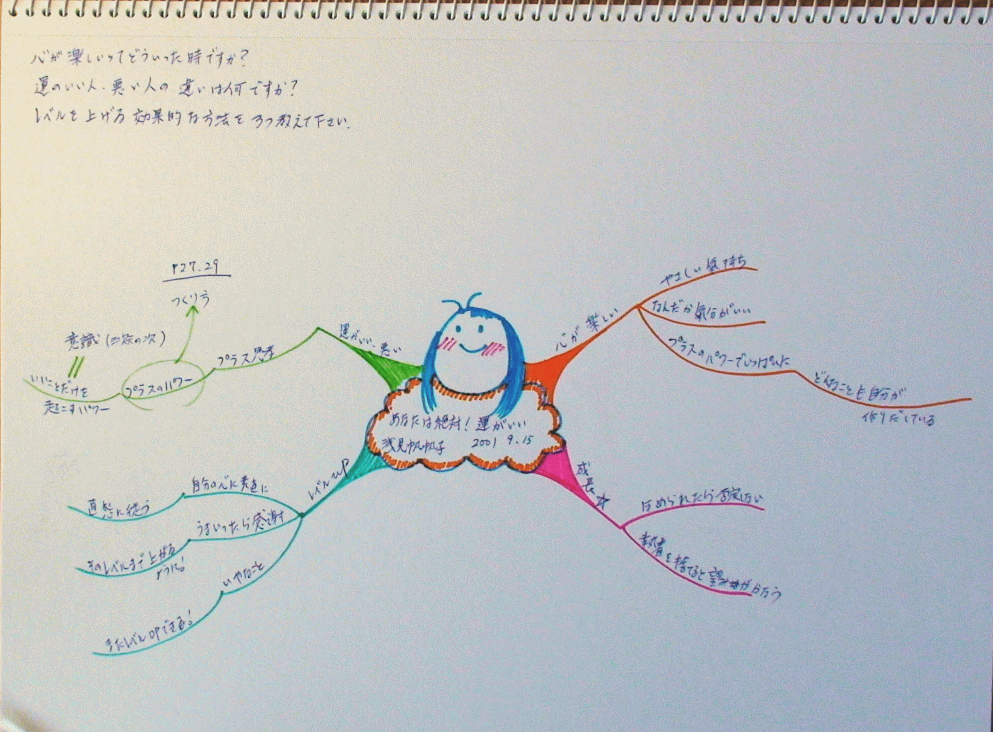 心が楽しいってどういった時ですか?
運のいい人・悪い人の違いは何ですか?
レベルを上げる効果的な方法を3つ教えて下さい.
あなたは絶対!運がいい
浅見帆帆子 2001 9.15
心が楽しい
やさしい気持ち
なんだか気分がいい
プラスのパワーでいっぱいに
どんなことも自分が
作りだしている
ほめられたら否定しない
執着を捨てると望みがかなう
レベルup
自分の心に素直に
直感に従う
うまくいったら感謝
そのレベルまで上がる
ように!
いやなこと
またレベルupできる!
運がいい・悪い
プラス思考
プラスのパワー
つくり方
P27.29
いいことだけを
起こすパワー
意識